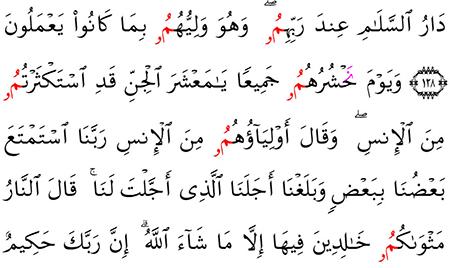 دَارُ ٱلسَّلَٰمِ عِندَ رَبِّهِمُۥۖ وَهُوَ وَلِيُّهُمُۥ بِمَا كَانُوا۟ يَعْمَلُونَ
﴿١٢٨﴾ وَيَوْمَ نَحْشُرُهُمُۥ جَمِيعًا يَٰمَعْشَرَ ٱلْجِنِّ قَدِ ٱسْتَكْثَرْتُمُۥ
مِنَ ٱلْإِنسِۖ وَقَالَ أَوْلِيَآؤُهُمُۥ مِنَ ٱلْإِنسِ رَبَّنَا ٱسْتَمْتَعَ
بَعْضُنَا بِبَعْضٍ وَبَلَغْنَا أَجَلَنَا ٱلَّذِى أَجَّلْتَ لَنَاۚ قَالَ ٱلنَّارُ
مَثْوَىٰكُمُۥ خَٰلِدِينَ فِيهَا إِلَّا مَا شَآءَ ٱللَّهُۗ إِنَّ رَبَّكَ حَكِيمٌ